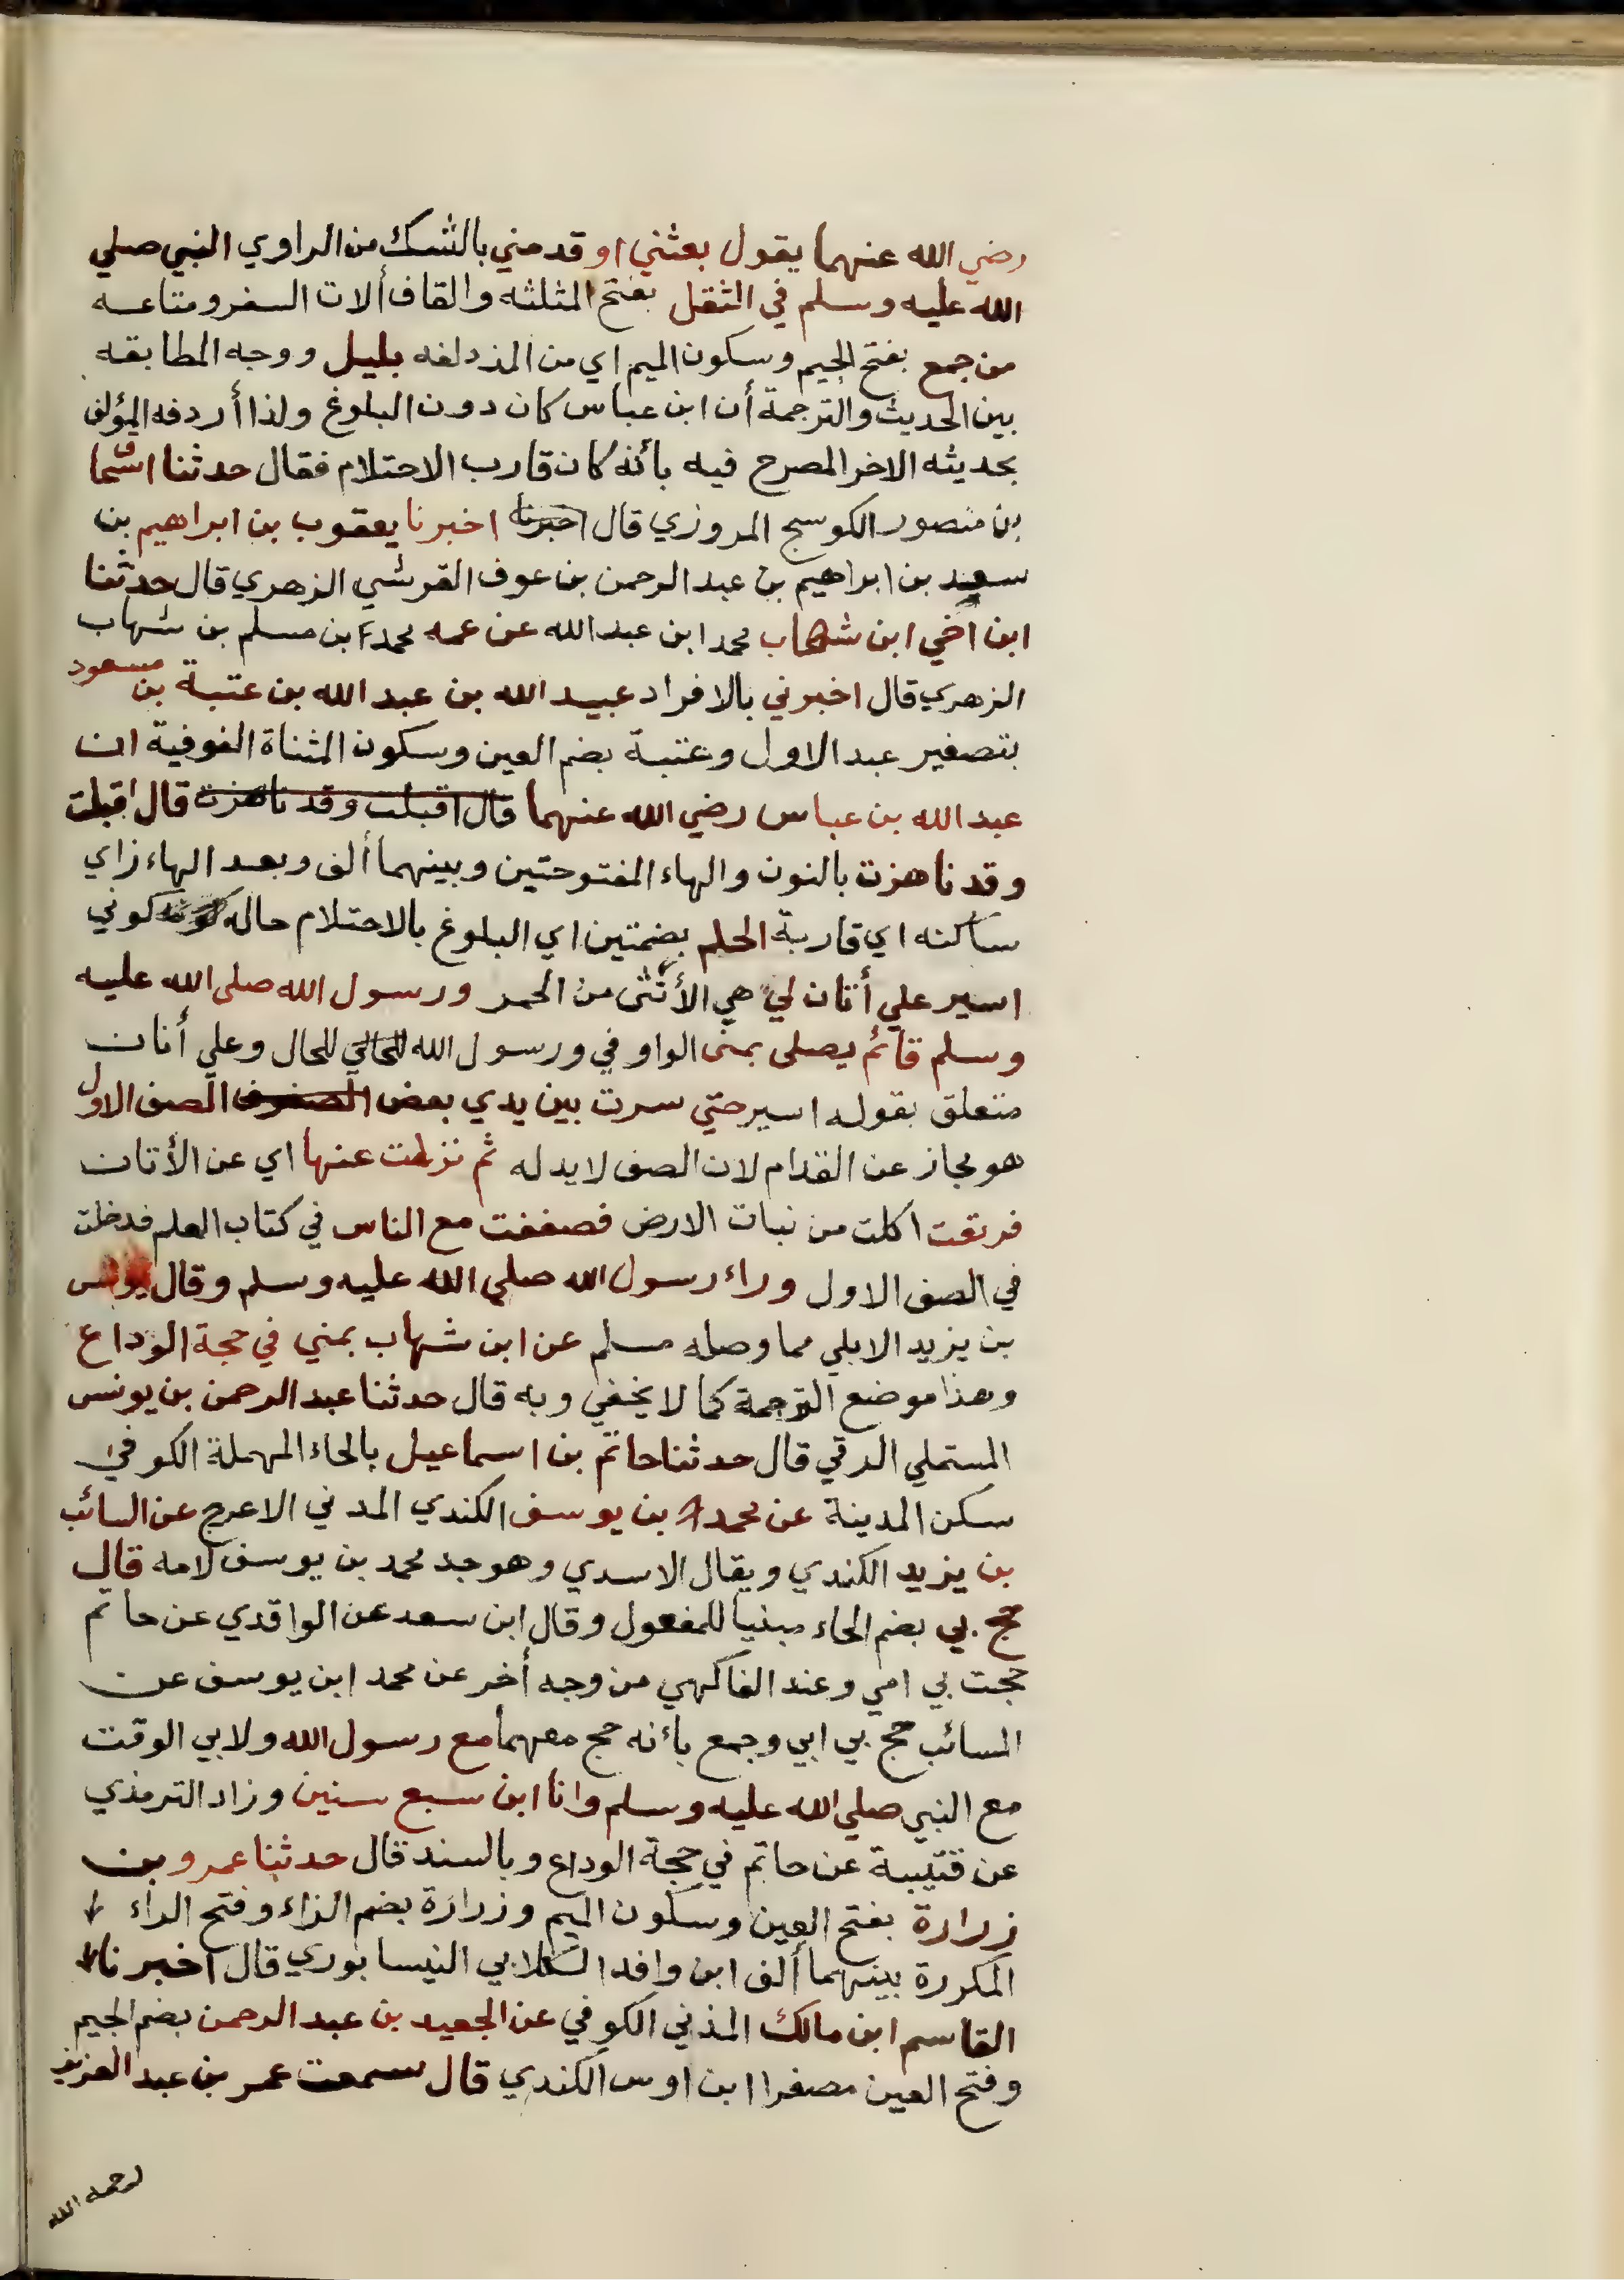 رضي الله عنهما يقول بعثني او قدمني بالشك من الراوي النبي صلي
الله عليه وسلم في الثقل بفتح المثلثه والقاف ألات السفر ومتاعه
من جمع بفتح الجيم وسكون الميم اي من المزدلفه بليل ووجه المطابقه
بين الحديث والترجمة أن ابن عباس كان دون البلوغ ولذا أردفه المؤلف
بحديثه الاخر المصرح فيه بأنه كان قارب الاحتلام فقال حدثنا
بن منصور الكوسج المروزي قال اخبرنا اخبرنا يعقوب بن ابراهيم بن
سعيد بن ابراهيم بن عبد الرحمن بن عوف القرشي الزهري قال حدثنا
ابن اخي ابن شهاب محمد ابن عبد الله عن عمه محمد ابن مسلم بن شهاب
الزهري قال اخبرني بالافراد عبيد الله بن عبد الله بن عتبة بن مسعود
بتصغير عبد الاول وعتبة بضم العين وسكون المثناة الفوقية ان
عبد الله بن عباس رضي الله عنهما قال اقبلت وقد ناهزت قال اقبلت
وقد ناهزت بالنون والهاء المفتوحتين وبينهما ألف وبعد الهاء زاي
ساكنه اي قاربة الحلم بضمتين اي البلوغ بالاحتلام حاله كونه كوني
اسير علي أتان لي هي الأنثى من الحمر ورسول الله صلى الله عليه
وسلم قائم يصلى بمنى الواو في ورسول الله للحالي للحال وعلي أتان
متعلق بقوله اسير حتي سرت بين يدي بعض الصفوف الصف الاول
هو مجاز عن القدام لان الصف لا يد له ثم نزلت عنها اي عن الأتان
فرتعت اكلت من نبات الارض فصففت مع الناس في كتاب العلم فدخلت
في الصف الاول وراء رسول الله صلي الله عليه وسلم وقال يونس
بن يزيد الايلي مما وصله مسلم عن ابن شهاب بمني في حجة الوداع
وهذا موضع الترجمة كما لا يخفي وبه قال حدثنا عبد الرحمن بن يونس
المستملي الرقي قال حدثنا حاتم بن اسماعيل بالحاء المهملة الكوفي
سكن المدينة عن محمد بن يوسف الكندي المدني الاعرج عن السائب
بن يزيد الكندي ويقال الاسدي وهو جد محمد بن يوسف لامه قال
حج بي بضم الحاء مبنيا للمفعول وقال ابن سعد عن الواقدي عن حاتم
حجت بي امي وعند الفاكهي من وجه أخر عن محمد ابن يوسف عن
السائب حج بي ابي وجمع بأنه حج معهما مع رسول الله ولابي الوقت
مع النبي صلي الله عليه وسلم وانا ابن سبع سنين وزاد الترمذي
عن قتيبة عن حاتم في حجة الوداع وبالسند قال حدثنا عمرو بن
زرارة بفتح العين وسكون الميم وزرارة بضم الزاء وفتح الراء
المكررة بينهما ألف ابن واقد الكلابي النيسابوري قال اخبرنا
القاسم ابن مالك المزني الكوفي عن الجعيد بن عبد الرحمن بضم الجيم
وفتح العين مصغرا ابن اوس الكندي قال سمعت عمر بن عبد العزيز
رحمه الله